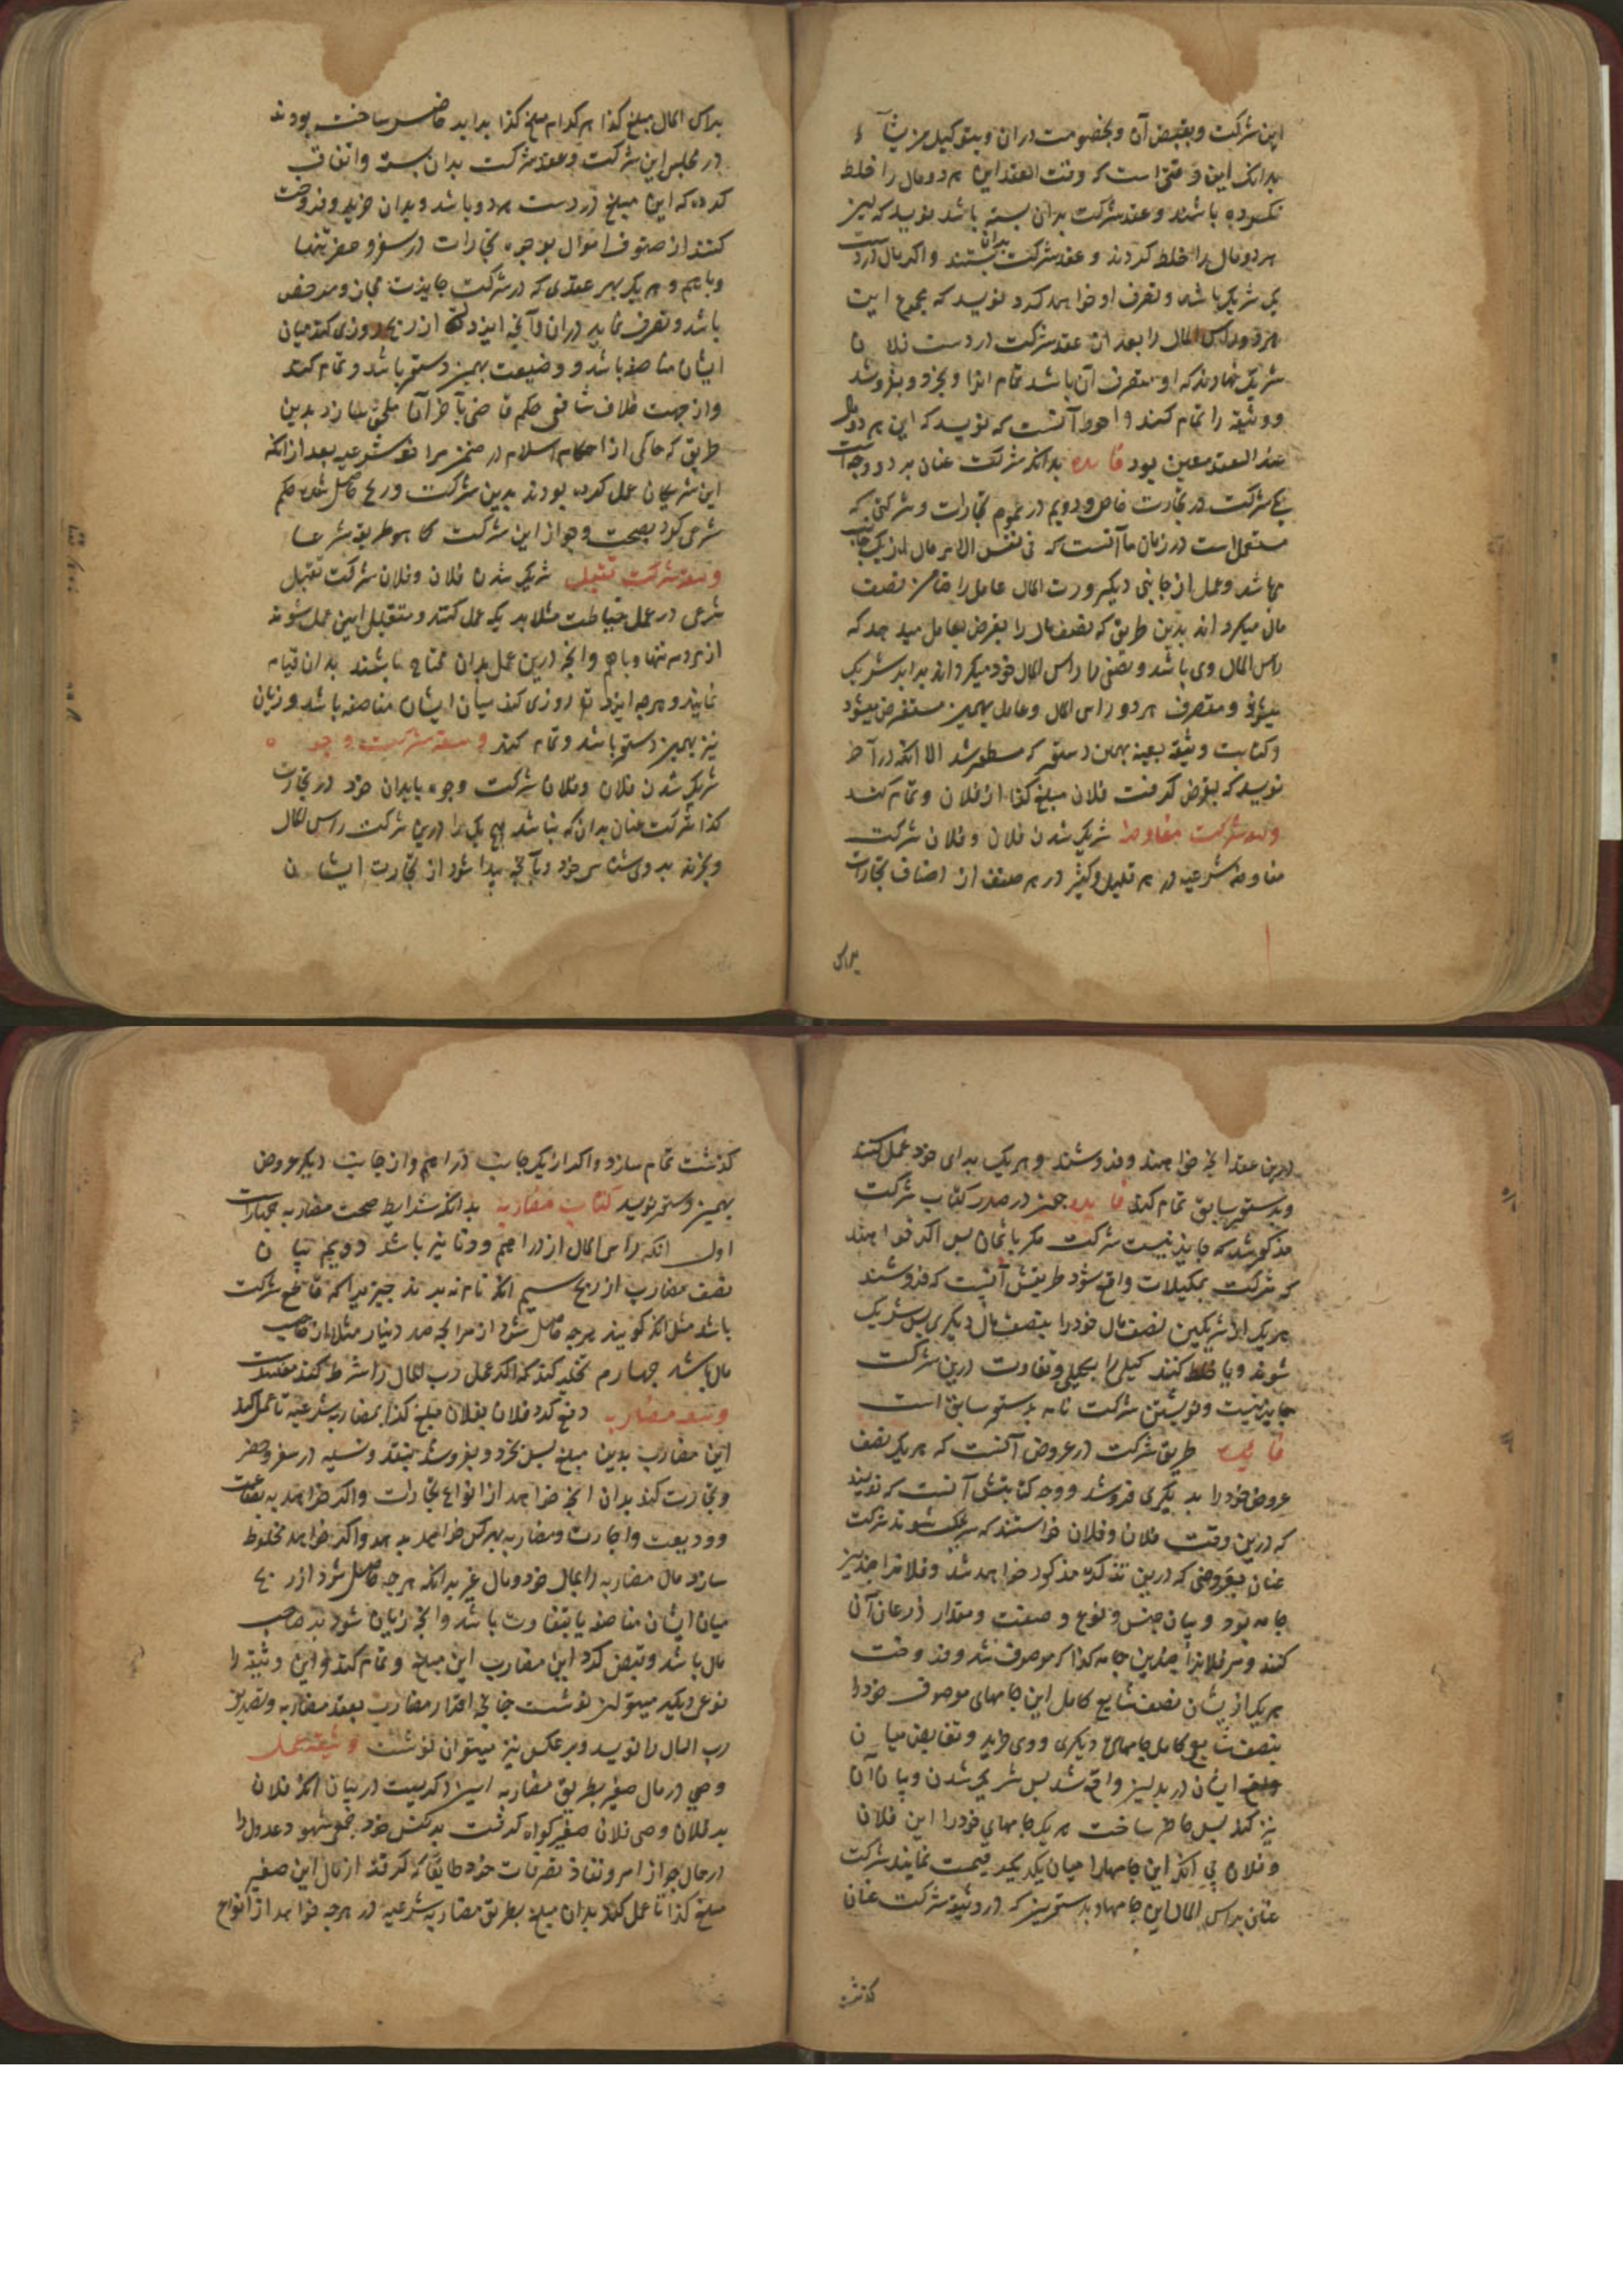 این شرکت و بقبض آن و بخصومت دران و بتوکیل من یشاء
بدانک این وقتی است که وقت العقد این هر دو مال را خلط
نکرده باشند و عقد شرکت بدان بسته باشد بنویسد که نیز
هر دو مال را خلط کردند و عقد شرکت بدان بستند و اکر مال در دست
یک شریک باشد و تصرف او خواهد کرد نویسد که مجموع این
هر دو راس المال را بعد از عقد شرکت در دست فلان
شریک نهادند که او متصرف آن باشد تمام انرا و بخرد و بفروشد
و وثیقه را تمام کنند و احوط آنست که نویسد که این هر دو مال
عند العقد معین بود فایده بدانکه شرکت عنان بر دو وجه است
یکی شرکت در تجارت خاص و دویم در عموم تجارات و شرکتی که
مستعمل است در زمان ما آنست که فی نفس الامر مال از یک جانب
می باشد و عمل از جانبی دیکر و رب المال عامل را ضامن نصف
مال میکرداند بدین طریق که نصف مال را بقرض بعامل میدهد که
راس المال وی باشد و نصفی را راس المال خود میکرداند برابر شریک
میشوند و متصرف هر دو راس المال و عامل بهمین مستقرض میشود
و کتابت وثیقه بعینه بهمین دستور که مسطور شد الا انکه در آخر
نویسد که بقرض کرفت فلان مبلغ کذا از فلان و تمام کند
وثیقه شرکت مفاوضه شریک شدن فلان و فلان شرکت
مفاوضه شرعیه در هر قلیل و کثیر در هر صنف از اصناف تجارات
براس
براس المال مبلغ کذا هر کدام مبلغ کذا برابر حاضر ساخته بودند
در مجلس این شرکت و عقد شرکت بدان بسته و اتفاق
کرده که این مبلغ در دست هر دو باشد و بدان خرید و فروخت
کنند از صنوف اموال بوجوه تجارات در سفر و حضر تنها
و باهم و هر یک بهر عقدی که در شرکت جایزست مجاز و مرخص
باشد و تصرف نماید دران و آنچه ایزد تعالی از ربح روزی کند میان
ایشان مناصفه باشد و وضیعت بهمین دستور باشد و تمام کنند
و از جهت خلاف شافعی حکم قاضی بآخر آن ملحق سازد بدین
طریق که حاکمی از احکام اسلام در ضمن مرافعه شرعیه بعد از انکه
این شریکان عمل کرده بودند بدین شرکت و ربح حاصل شده حکم
شرعی کرد بصحت و جواز این شرکت کما هو طریقه شرعا
وثیقه شرکت تقبل شریک شدن فلان و فلان شرکت تقبل
شرعی در عمل خیاطت مثلا هر یک عمل کنند و متقبل این عمل شوند
از مردم تنها و باهم و انچه درین عمل بدان محتاج باشند بدان قیام
نمایند و هرچه ایزد تعالی روزی کند میان ایشان مناصفه باشد و زیان
نیز بهمین دستور باشد و تمام کند وثیقه شرکت وجوه
شریک شدن فلان و فلان شرکت وجوه بابدان خود در تجارت
کذا شرکت عنان بدان که نباشد هیچ یک را درین شرکت راس المال
و بخرند بروی شناسی خود و بآنچه پیدا شود از تجارت ایشان
درین عقد انچه خواهند و فروشند و هر یک برای خود عمل کنند
و بدستور سابق تمام کند فایده چون در صدر کتاب شرکت
مذکور شد که جایز نیست شرکت مکر باثمان پس اکر خواهند
که شرکت بمکیلات واقع شود طریقش آنست که فروشند
هر یک از شریکین نصف مال خود را بنصف مال دیکری پس شریک
شوند و یا خلط کنند کیلی را بکیلی و تفاوت درین شرکت
جایز نیست و نوشتن شرکت نامه بدستور سابق است
فایده طریق شرکت در عروض آنست که هر یک نصف
عروض خود را بدیکری فروشد و وجه کتابتش آنست که نویسند
که درین وقت فلان و فلان خواستند که شریک شوند شرکت
عنان بعروضی که درین تذکره مذکور خواهد شد و فلانرا چندین
جامه بود و بیان جنس و نوع و صفت و مقدار ذرعان آن
کنند و مر فلانرا چندین جامه کذا که موصوف شد و فروخت
هر یک از ایشان نصف شایع کامل این جامهای موصوف خود را
بنصف شایع کامل جامهای دیکری و وی خرید و تقابض میان
ایشان در بدلین واقع شد پس شریک شدن و بیان آن
نیز کند پس حاضر ساخت هر یک جامهای خود را این فلان
و فلان بی انکه این جامهارا میان یکدیکر قیمت نمایند شرکت
عنان براس المال این جامها و بدستور نیز که در وثیقه شرکت عنان
کذشت
کذشت تمام سازد و اکر از یک جانب دراهم و از جانب دیکر عروض
بهمین دستور نویسد کتاب مضاربه بدانکه شرایط صحت مضاربه چهارست
اول انکه راس المال از دراهم و دنانیر باشد دویم بیان
نصف مضارب از ربح سیم انکه نام نه برند چیزیرا که قاطع شرکت
باشد مثل انکه کویند هرچه حاصل شود از مرابحه صد دینار مثلا از صاحب
مال باشد چهارم تخلیه کند که اکر عمل رب المال را شرط کنند مفسد است
وثیقه مضاربه دفع کرد فلان بفلان مبلغ کذا بمضاربه شرعیه تا عمل کند
این مضارب بدین مبلغ پس بخرد و بفروشد بنقد و نسیه در سفر و حضر
و تجارت کند بدان انچه خواهد از انواع تجارات و اکر خواهد به بضاعت
و ودیعت و اجارت و مضاربه بهرکس خواهد بدهد و اکر خواهد مخلوط
سازد مال مضاربه را بمال خود و مال غیر بدانکه هرچه حاصل شود از ربح
میان ایشان مناصفه یا بتفاوت باشد و انچه زیان شود بر صاحب
مال باشد و قبض کرد این مضارب این مبلغ و تمام کند و این وثیقه را
نوعی دیکر میتوان نوشت چنانچه اقرار مضارب بعقد مضاربه و تصدیق
رب المال را نویسد و بر عکس نیز میتوان نوشت وثیقه عمل
وصی در مال صغیر بطریق مضاربه اینذکریست در بیان آنکه فلان
بن فلان وصی فلان صغیر کواه کرفت بر نفس خود جمعی شهود عدول را
در حال جواز امر و نفاذ تصرفات خود طایعا که کرفتم از مال این صغیر
مبلغ کذا تا عمل کند بدان مبلغ بطریق مضاربه شرعیه در هرچه خواهد از انواع